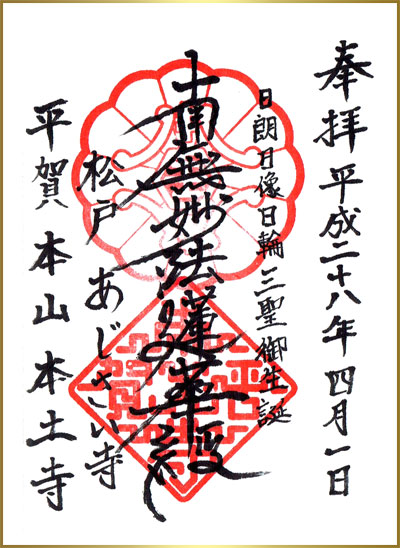 奉拝 平成二十八年四月一日
日朗日像日輪三聖御生誕
南無妙法蓮華経
松戸 あじさい寺
平賀 本山本土寺